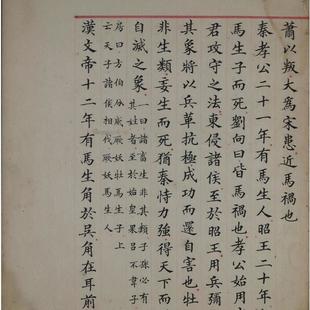 蕭以叛大為宋患近馬禍也
秦孝公二十一年有馬生人昭王二十年
馬生子而死劉向曰皆馬禍也孝公始用
君攻守之法東侵諸侯至於昭王用兵彌
其象將以兵革抗極成功而還自害也牡
非生類妄生而死猶秦恃力強得天下而
自滅之象
一曰諸畜生非其類子孫必有
其姓者至於始皇果呂不韋子
房曰方伯分威厥妖牡馬生子上
天子諸侯相伐厥妖馬生人
漢文帝十二年有馬生角於吳角在耳前